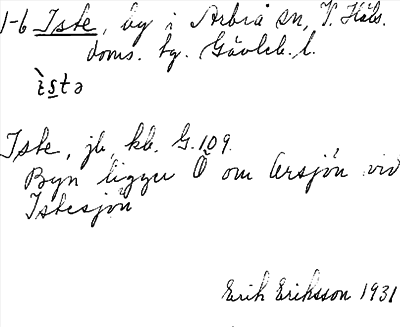 1-6 Iste, by i Arbrå sn, V. Häls.
doms. by. Gävleb. l.
ìs̲tə
Iste, jb, kb. G. 109.
Byn ligger Ö om Orsjön vid
Istesjön
Erik Eriksson 1931